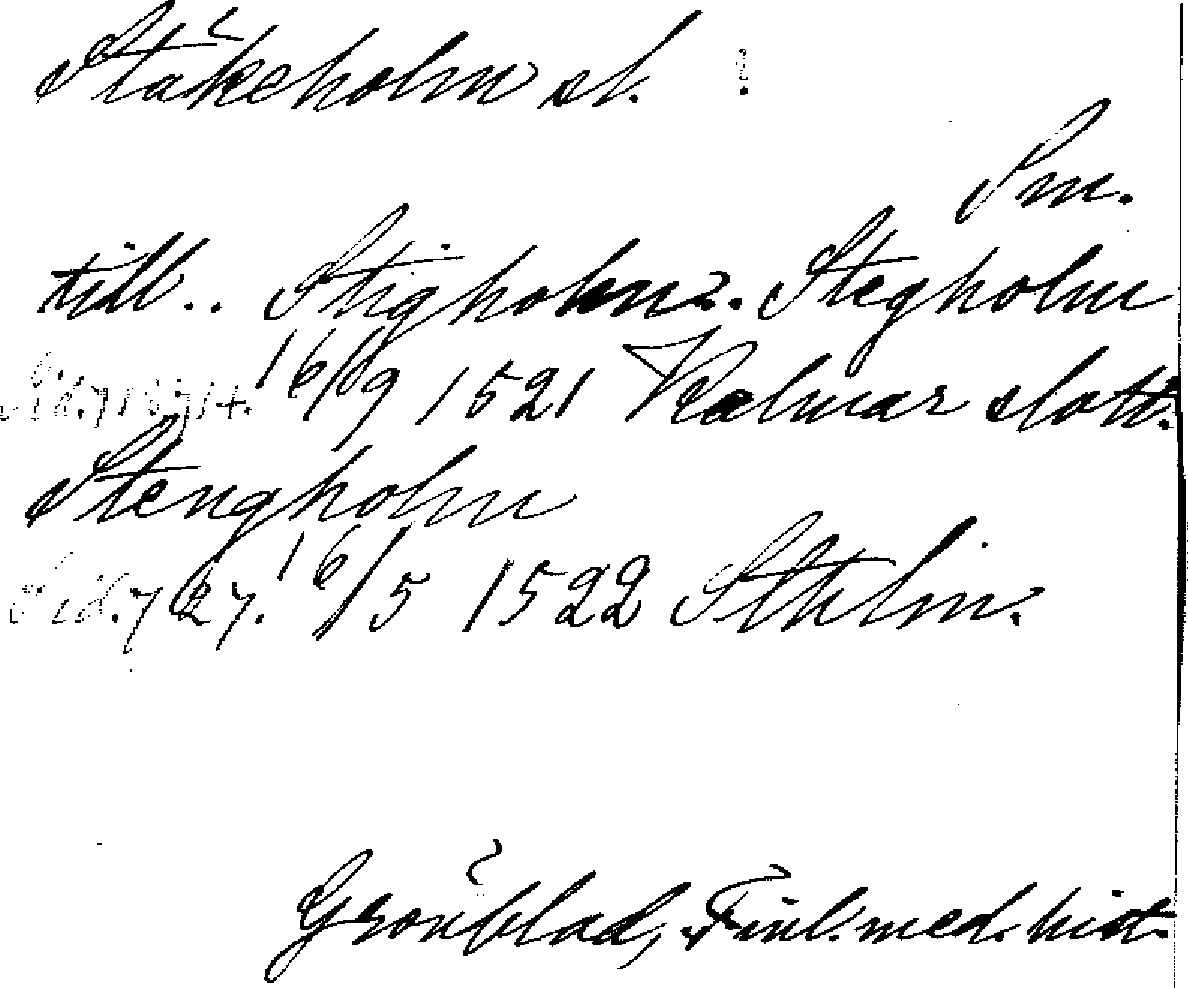 Stäkeholm sl.
Sm.
till.. Stigholm. Stegholm
16/9 1521 Kalmar slott.
Stengholm
Sid. 727. 16/5 1522 Sthlm.
Grönblad, Finl. med. hist.